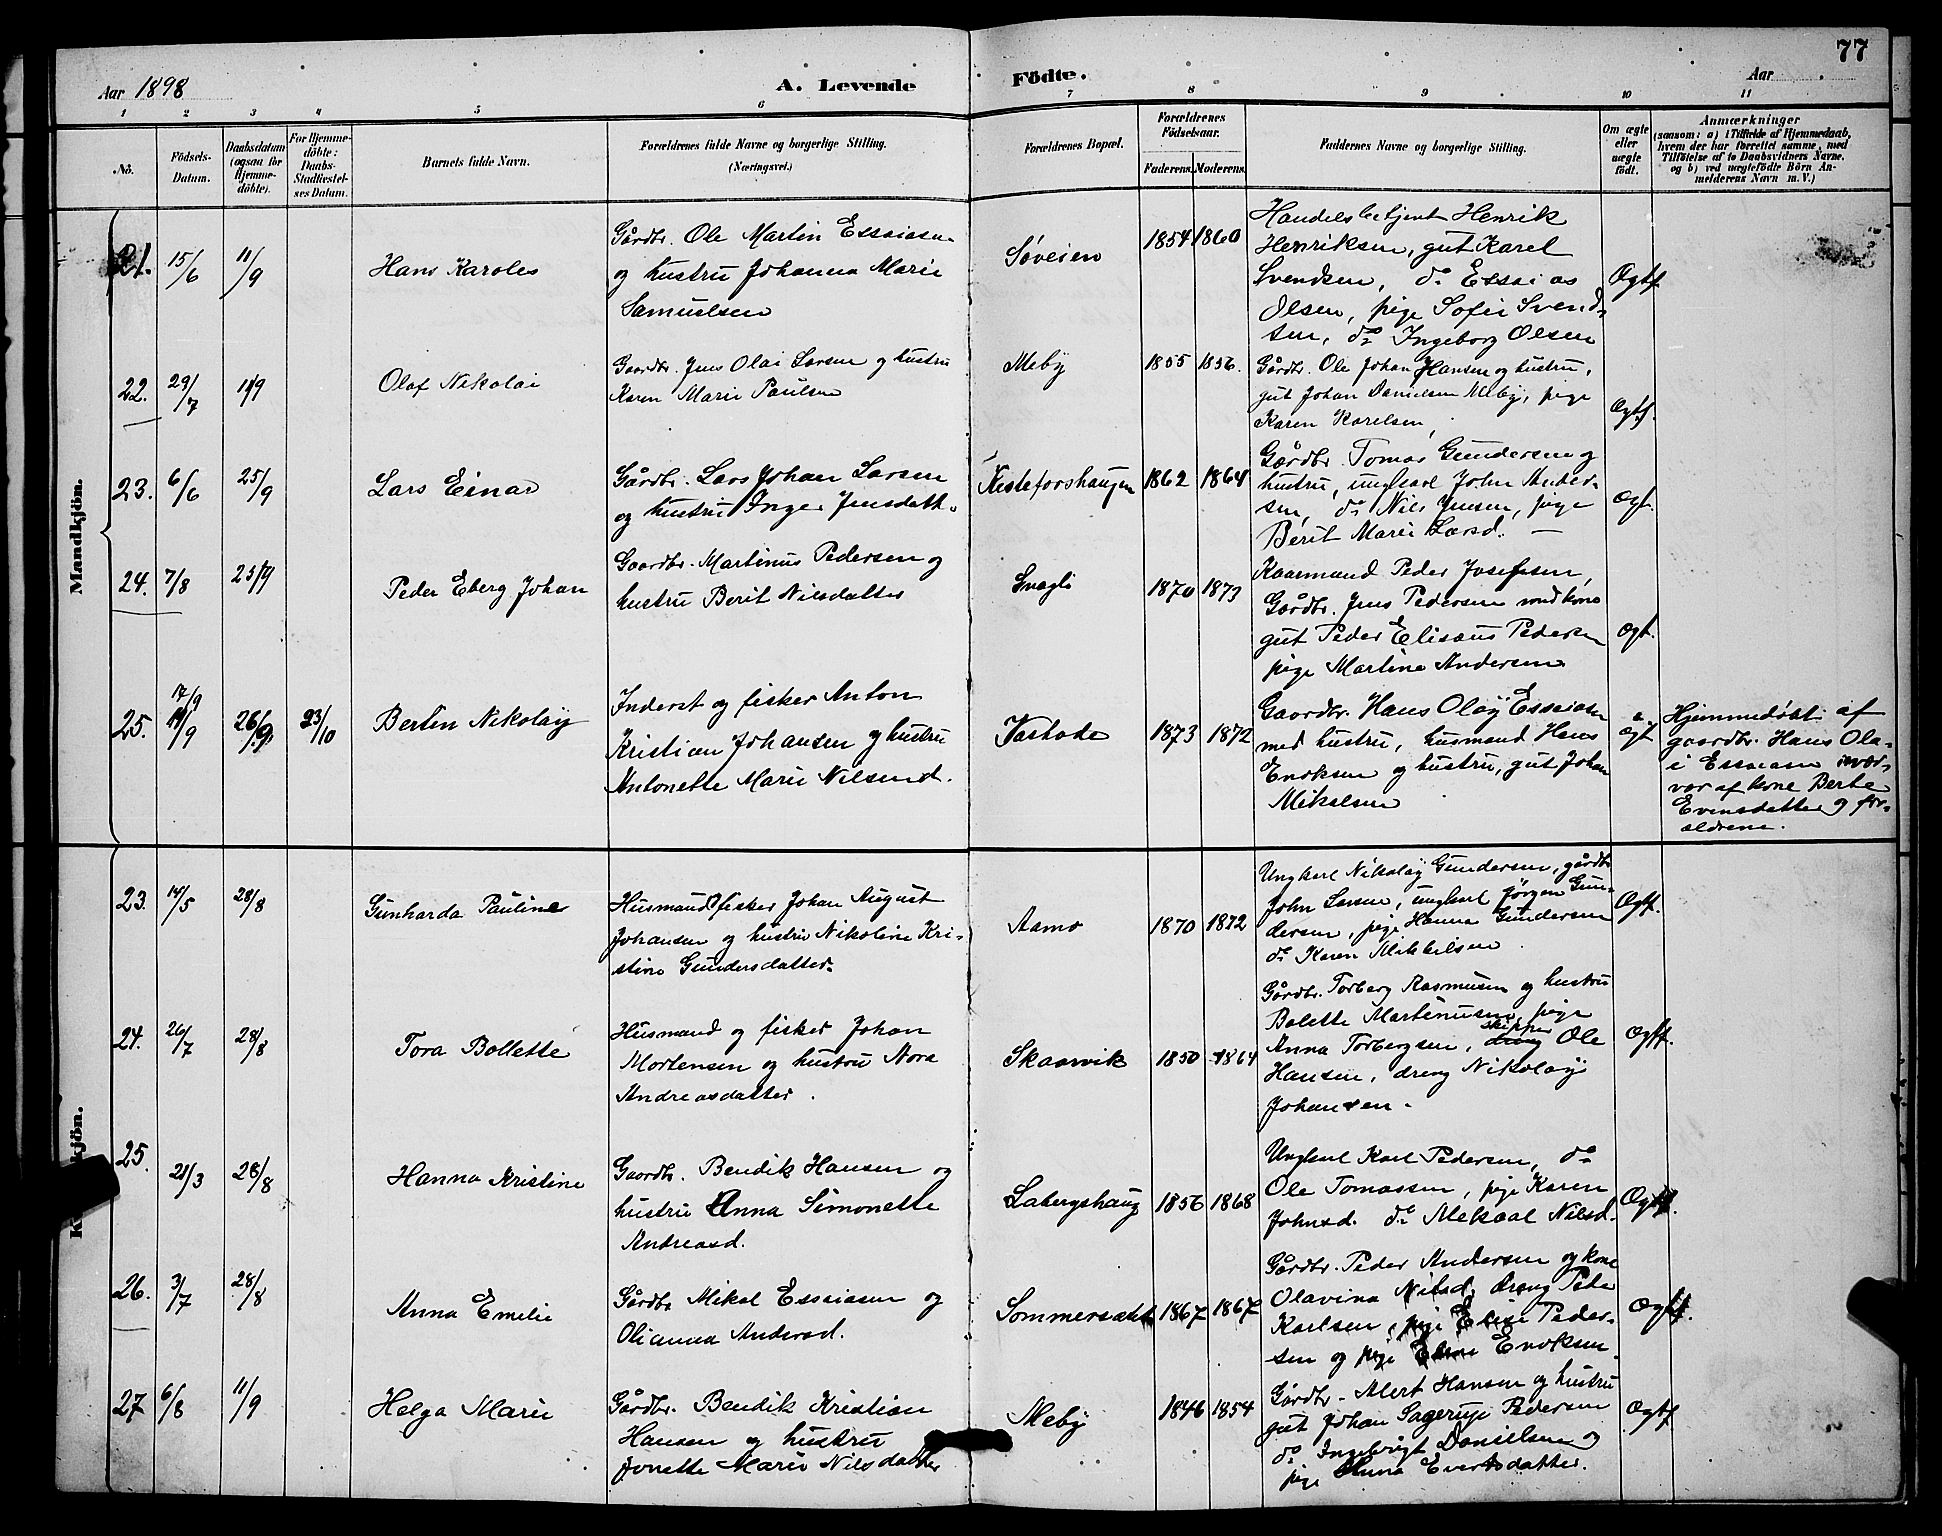 77
Aar 1898
A. Levende
Födte.
Aar
1 2 3 4 5 6 7 8 9 10 11
No.
Födsels-
Datum.
Daabsdatum
(ogsaa for
Hjemme-
döbte).
For Hjemme-
döbte:
Daabs-
Stadfæstel-
ses Datum.
Barnets fulde Navn.
Forældrenes fulde Navne og borgerlige Stilling.
(Næringsvei.)
Forældrenes Bopæl.
Forældrenes
Födselsaar.
Faderens. Moderens.
Faddernes Navne og borgerlige Stilling.
Om ægte
eller
uægte
födt.
Anmærkninger
(saasom: a) i Tilfælde af Hjemmedaab,
hvem der har forrettet samme, med
Tilföielse af to Daabsvidners Navne,
og b) ved uægtefödte Börn An-
melderens Navn m. V.)
Mandkjön.
21. 15/6 11/9
Hans Karoles
Gårdbr. Ole Martin Essaiasen
og hustru Johanna Marie
Samuelsen
Søveien
1854 1860
Handelsbetjent Henrik
Henriksen, gut Karel
Svendsen, do Essaias
Olsen, pige Sofie Svend-
sen, do Ingeborg Olsen
Ogtf.
22. 29/7 11/9
Olaf Nikolai
Gaardbr. Jens Olai Larsen og hustru
Karen Marie Paulsen
Meby
1855 1856.
Gårdbr. Ole Johan Hansen og hustru,
gut Johan Danielsen Meby, pige
Karen Karelsen,
Ogtf.
23. 6/6 25/9
Lars Einar
Gårdbr. Lars Johan Larsen
og hustru Inger Jensdatt.
Kisteforshaugen
1862 1864
Gårdbr. Tomas Gundersen og
hustru, ungkarl John Ander-
sen, do Nils Jensen, pige
Berit Marie Larsd. —
Ogt.
24. 7/8 25/9
Peder Eberg Johan
Gaardbr. Martinus Pedersen og
hustru Berit Nilsdatter
Snagli
1870 1873
Kaarmand Peder Josefsen,
Gårdbr. Jens Pedersen med kone
gut Peder Elisæus Pedersen
pige Martine Andersen
Ogt.
25. 17/9 26/9 23/10
Bertin Nikolay
Inderst og fisker Anton
Kristian Johansen og hustru
Antonette Marie Nilsend.
Vashode
1873 1872
Gaardbr. Hans Oläy Essaiasen
med hustru, husmand Hans
Enoksen og hustru, gut Johan
Mikalsen
ægt
Hjemmedøbt af
gaardbr. Hans Ola-
i Essaiasen nær-
var af kone Berte
Evensdatter og for-
ældrene.
23. 14/5 28/8
Gunharda Pauline
Husmand fisker Johan August
Johansen og hustru Nikoline Kri-
stine Gundersdatter.
Aamo
1870 1872
Ungkarl Nikoläy Gundersen, gårdbr.
John Larsen, ungkarl Jörgen Gun-
dersen, pige Hanna Gundersen
do Karen Mikkelsen
Ogtf.
24. 26/7 28/8
Tora Bollette
Husmand og fisker Johan
Mortensen og hustru Nora
Andreasdatter.
Skaarvik
1850 1864
Gårdbr. Torberg Rasmusen og hustru
Bolette Martinusen, pige
Anna Torbergsen, skipper Ole
Hansen, dreng Nikolay
Johansen.
Ogtf.
25. 21/3 28/8
Hanna Kristine
Gaardbr. Bendik Hansen og
hustru Anna Simonette
Andreasd.
Labergshaug
1856 1868
Ungkarl Karl Pedersen, do
Ole Tomassen, pige Karen
Johnsd. do Mekaal Nilsd.
Ogtf.
26. 3/7 28/8
Anna Emelie
Gårdbr Mikal Essaiasen og
Olianna Andersd.
Sommersædet
1867 1867
Gårdbr. Peder Andersen og kone
Olavina Nilsd, dreng Peder
Karlsen, pige Elise Peder-
sen og pige Enoksen.
Ogtf.
27 6/8 11/9
Helga Marie
Gårdbr. Bendik Kristian
Hansen og hustru
Jonette Marie Nilsdatter
Meby
1846 1854
Gårdbr. Mert Hansen og hustru
gut Johan Sagerup Pedersen
do Ingebrigt Danielsen og
pige Anna Evertsdatter.
Ogtf.